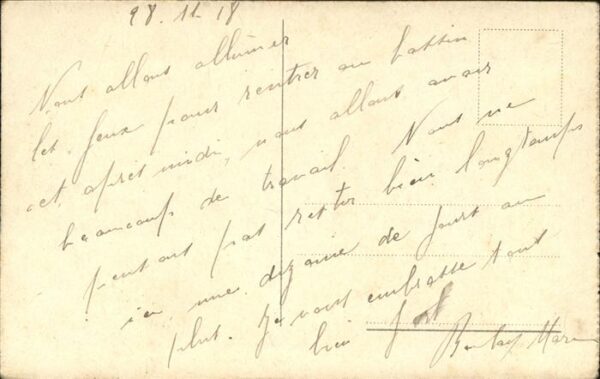 28.11.18
Nous allons allumer
les feux pour rentrer au bassin
cet après midi, nous allons avoir
beaucoup de travail. Nous ne
pensons pas rester bien longtemps
ici, une dizaine de jours au
plus. Je vous embrasse tout
bien fort